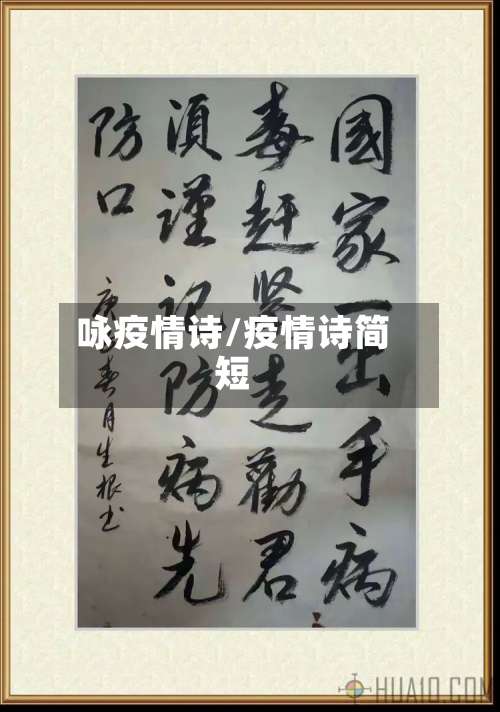 國家一出手病
毒赶紧走勸君
須謹記防病先
防口
庚春月生根书
咏疫情诗/疫情诗简
短
HUA10.COM